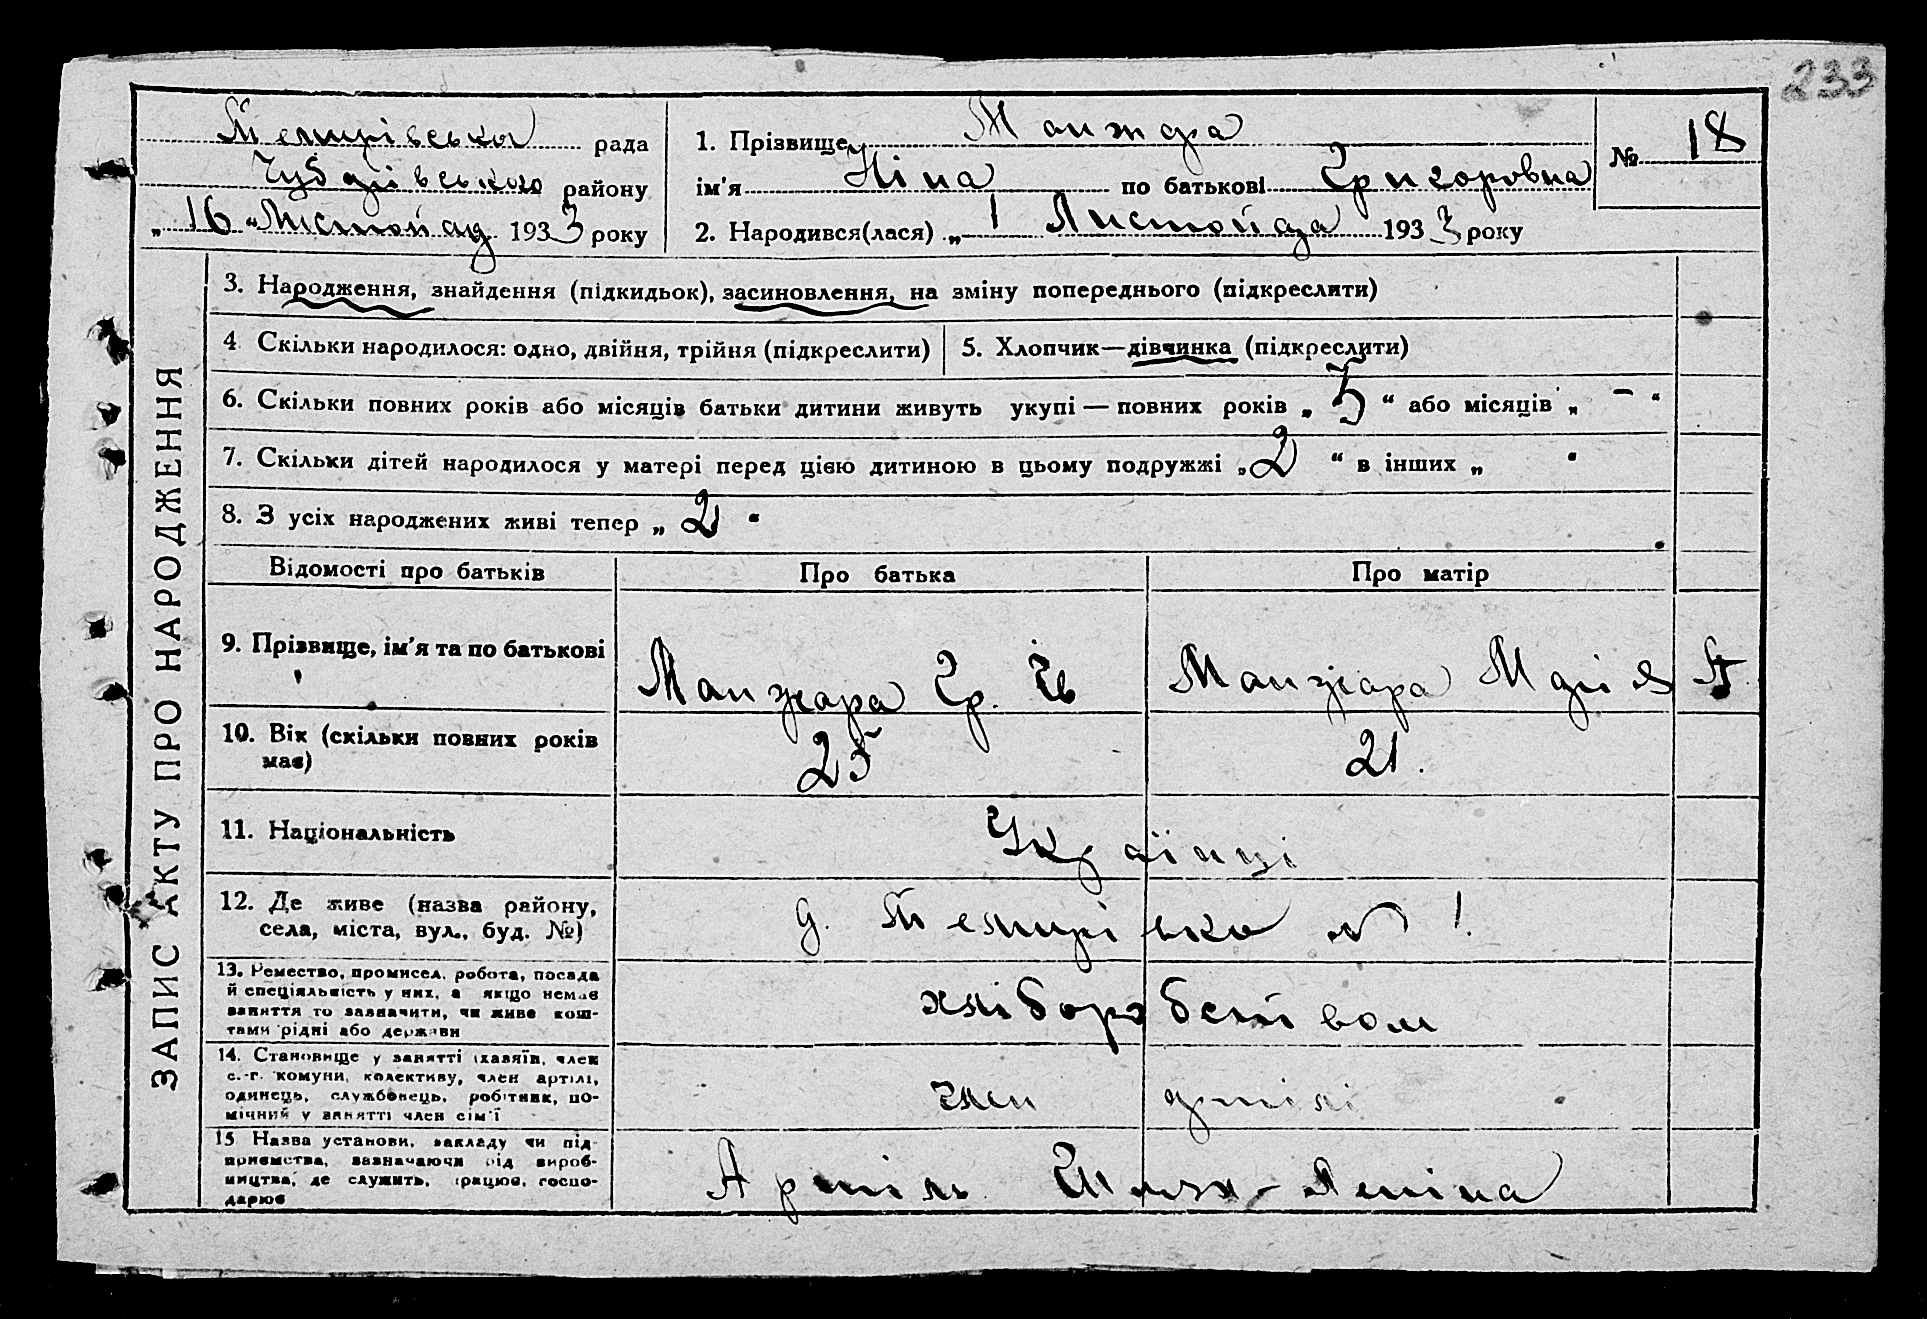 233
Темирівська рада
Чубарівського району
„ 16 “ Листопад 1933 року
1. Прізвище Манжара
ім'я Ніна по батькові Григоровна
2. Народився(лася) „ 1 Листопада 1933 року
№ 18
ЗАПИС АКТУ ПРО НАРОДЖЕННЯ
3. Народження, знайдення (підкидьок), засиновлення, на зміну попереднього (підкреслити)
4 Скільки народилося: одно, двійня, трійня (підкреслити)
5. Хлопчик—дівчинка (підкреслити)
6. Скільки повних років або місяців батьки дитини живуть укупі — повних років „ 5 “ або місяців „ – “
7. Скільки дітей народилося у матері перед цією дитиною в цьому подружжі „ 2 “ в інших „ “
8. З усіх народжених живі тепер „ 2 “
Відомості про батьків Про батька Про матір
9. Прізвище, ім'я та по батькові Манжара Гр. Манжара Марія
10. Вік (скільки повних років має) 25 21.
11. Національність Українці
12. Де живе (назва району, села, міста, вул., буд. №) Темирівка
13. Ремество, промисел, робота, посада
й спеціяльність у них, а якщо немає
заняття то зазначити, чи живе кош-
тами рідні або держави
хліборобством
14. Становище у занятті (хазяїн, член
с.-г. комуни, колективу, член артілі,
одинець, службовець, робітник, по-
мічний у занятті член сім'ї
член артілі
15 Назва установи, закладу чи під-
приємства, зазначаючи рід вироб-
ництва, де служить, працює, госпо-
дарює
Артіль Шлях-Леніна